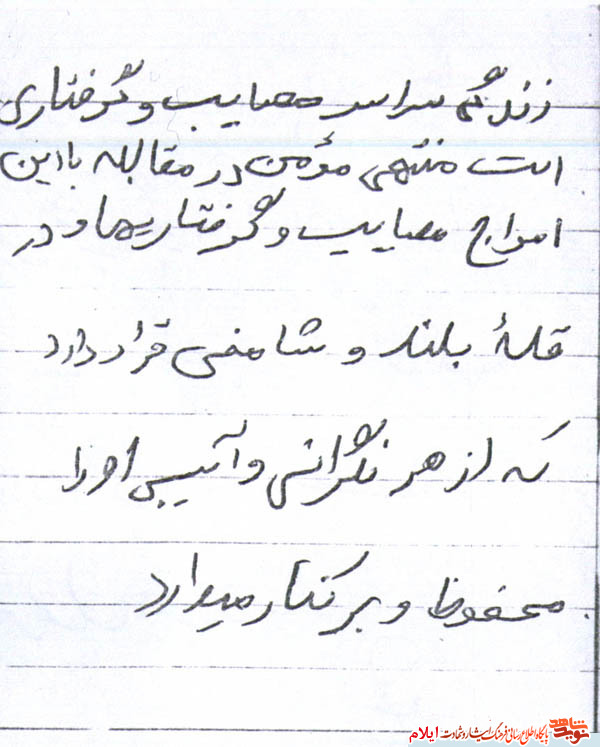 زندگی سراسر مصایب و گرفتاری
است منتهی مؤمن در مقابله با این
امواج مصایب و گرفتاریها و در
قلهٔ بلند و شامخی قرار دارد
که از هر نگرانی و آسیبی او را
محفوظ و برکنار میدارد
نوید شاهد
پایگاه اطلاع رسانی فرهنگ ایثار و شهادت ایلام